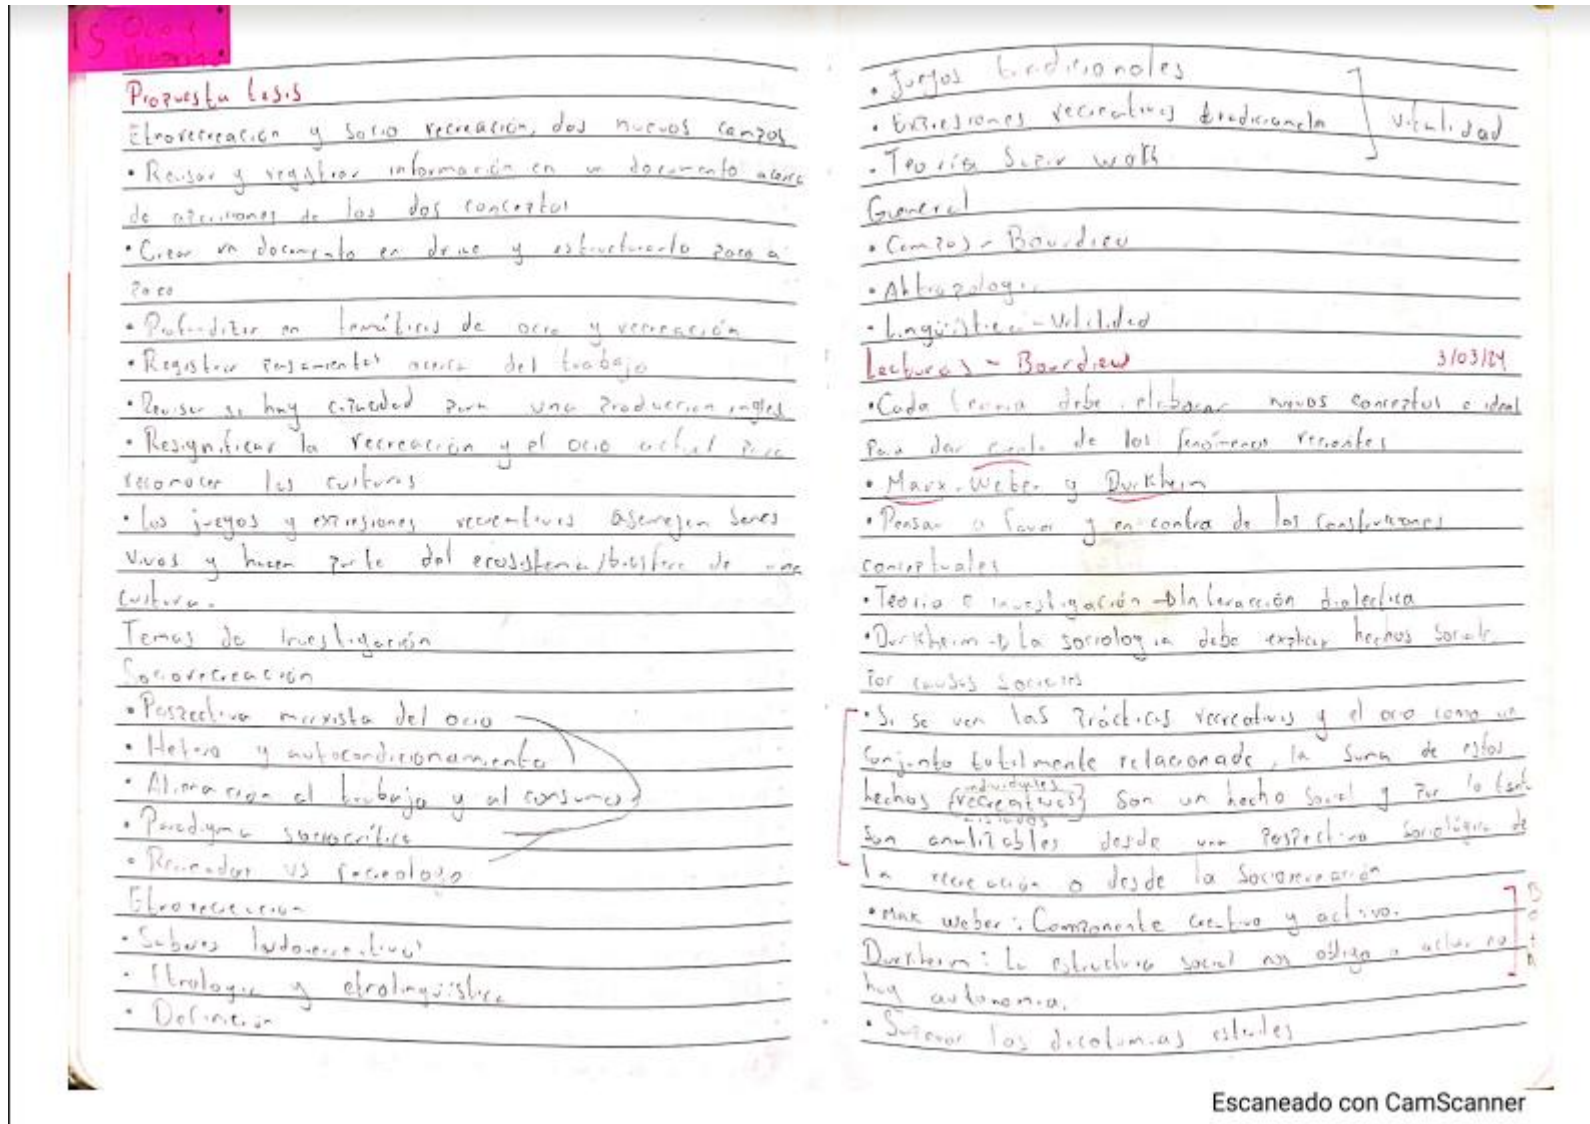 15 Ocio y
Propuesta tesis
Etnorecreación y socio recreación, dos nuevos campos
• Revisar y registrar información en un documento acerca
de de los dos conceptos
• Crear un documento en drive y estructurarlo poco a
poco
• Profundizar en temáticas de ocio y recreación
• Registrar pensamientos acerca del trabajo
• Revisar si hay para una produccion ingles
• Resignificar la recreación y el ocio actual para
reconocer las culturas
• Los juegos y expresiones recreativas asemejan seres
vivos y hacen parte del ecosistema/biosfera de una
cultura.
Temas de investigación
Sociorecreación
• Perspectiva marxista del ocio
• Hetero y autocondicionamiento
• Alienación al trabajo y al consumo
• Paradigma sociocrítico
• Recreador vs recreologo
Etnorecreación
• Saberes ludorecreativos
• Etnologia y etnolingüística
• Definición
• Juegos tradicionales
• Expresiones recreativas tradicionales
vitalidad
• Teoría
General
• Campos - Bourdieu
• Antropologia
• Lingüística - Vitalidad
Lecturas - Bourdieu 3/03/24
• Cada teoria debe nuevos conceptos e ideas
para dar cuenta de los fenómenos recientes
• Marx, Weber y Durkheim
• Pensar a favor y en contra de las construcciones
conceptuales
• Teoria e investigación → Interacción dialectica
• Durkheim → La sociologia debe explicar hechos sociales
por causas sociales
• Si se ven las prácticas recreativas y el ocio como un
conjunto totalmente relacionado, la suma de estos
individuales
hechos (recreativos) son un hecho social y por lo tanto
aislados
son analizables desde una perspectiva sociológica de
la recreación o desde la Sociorecreación
• Max Weber: Componente creativo y activo.
Durkheim: La estructura social nos obliga a actuar no
hay autonomia.
• Superar las dicotomias esteriles
Escaneado con CamScanner